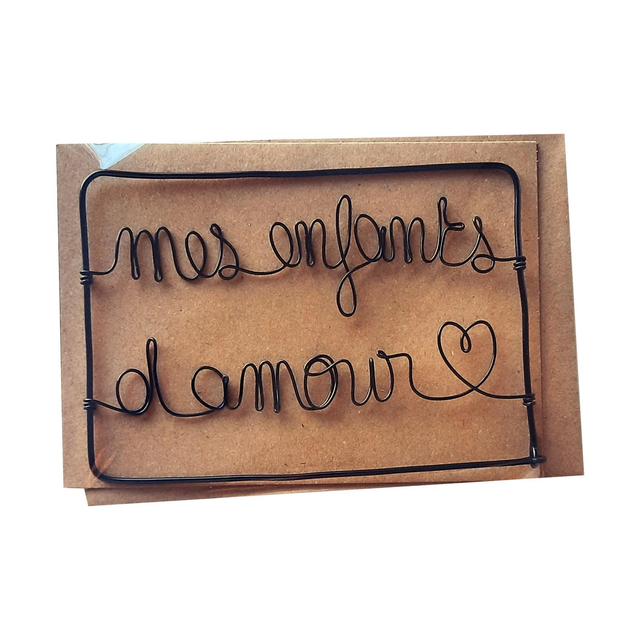 mes enfants
damour